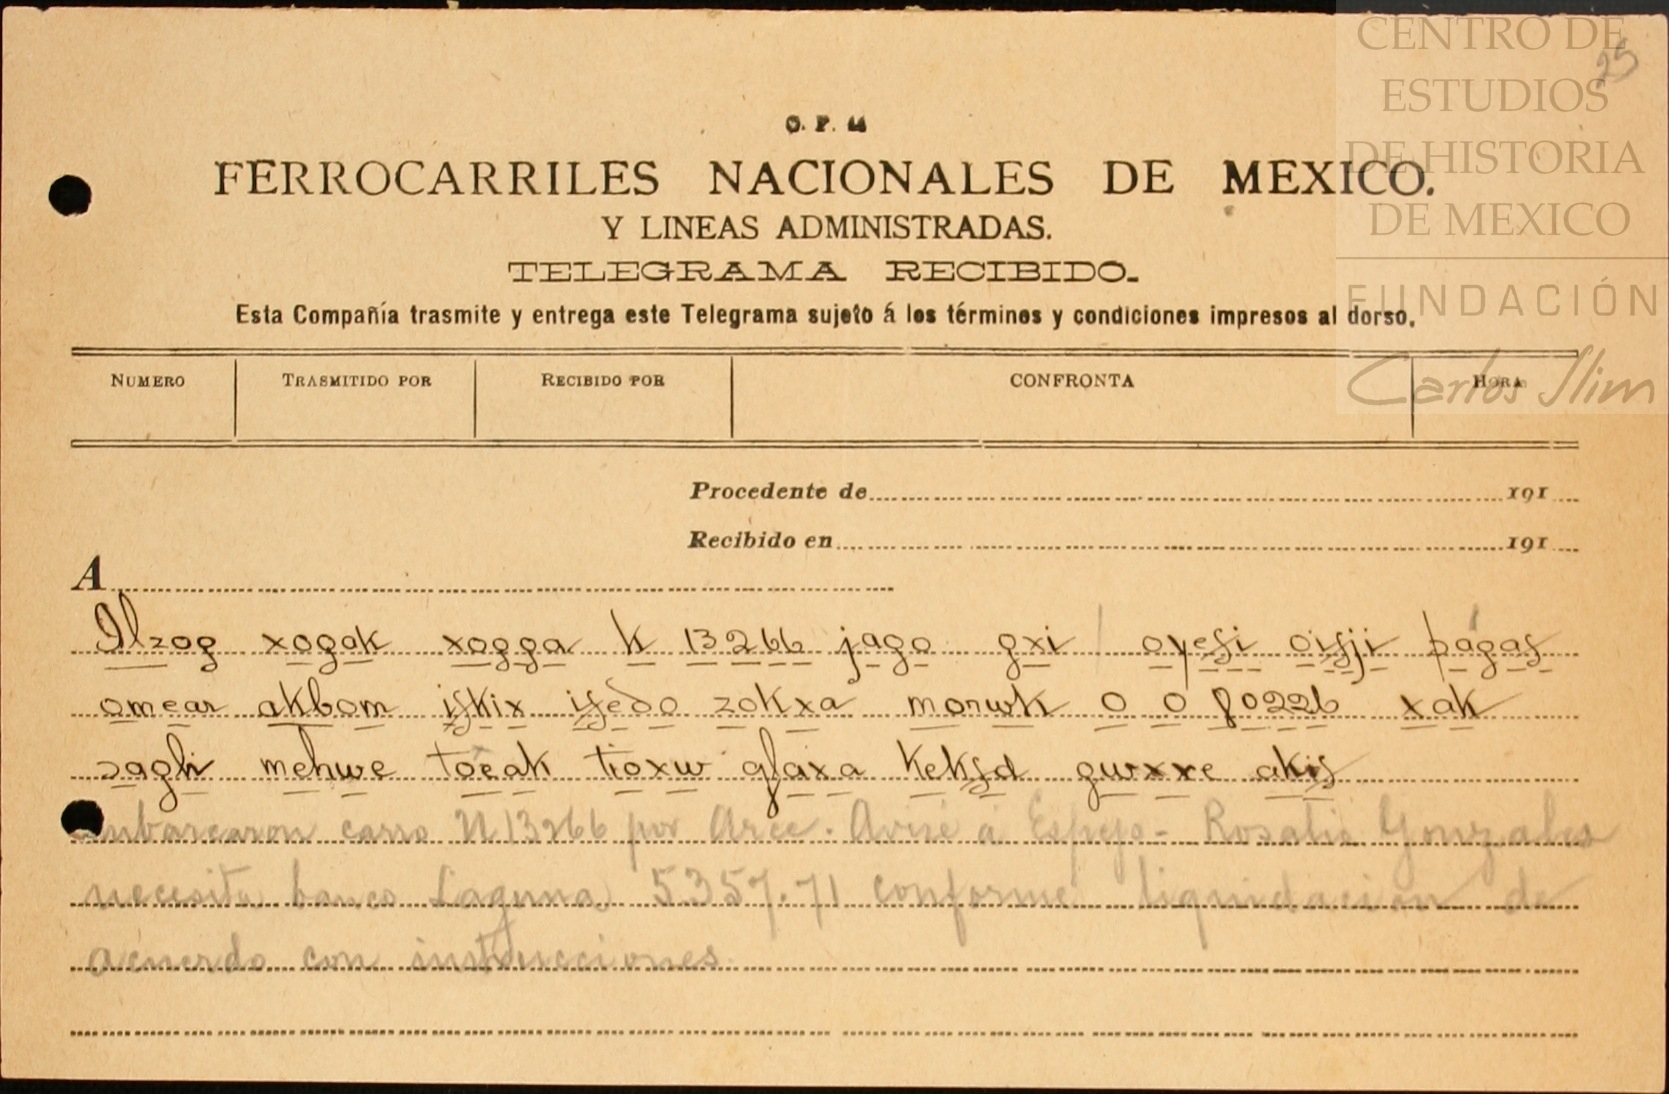 CENTRO DE
ESTUDIOS
DE HISTORIA
DE MEXICO
FUNDACIÓN
Carlos Slim
25
O. P. 44
FERROCARRILES NACIONALES DE MEXICO.
Y LINEAS ADMINISTRADAS.
TELEGRAMA RECIBIDO.
Esta Compañía trasmite y entrega este Telegrama sujeto á los términos y condiciones impresos al dorso.
NUMERO TRASMITIDO POR RECIBIDO POR CONFRONTA HORA
Procedente de 191
Recibido en 191
A
Ilzog xogak xogga k 13266 jago gxi oyesi oisji pagas
omear akbom iskix isedo zokxa monwk 0 0 xak
sagh mehwe toeak tioxw gsaxa keksd gwxxe akis
embarcaron carro N 13266 por Arce. Avise a Espejo - Rosalio Gonzales
necesita banco Laguna 5357.71 conforme liquidacion de
acuerdo con instrucciones